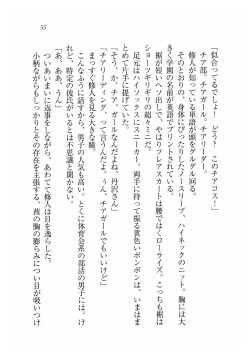 55
「似合ってるでしょ！　どう？　このチアコス！」
チア部。チアガール。チアリーダー。
修人が知っている単語が頭をグルグル回る。
そのとおり、身体にぴったりしたノースリーブ、ハイネックのニット。胸には大
きく学園の名前が英語でプリントされている。
裾が短いヘソ出しで、やはりフレアスカートは腰ではくローライズ。こっちも裾は
ショーツギリギリの超々ミニだ。
足元はハイソックスにスニーカー。両手に持って踊る黄色いボンボンは、いまはま
とめて片手に提げていた。
「そ、そっか、チア、ガールなんだよね、丹沢さん」
「チアリーディング、って言うんだよ。うん、チアガールでもいいけど」
まっすぐ修人を見る大きな瞳。
こんなふうに話すから、男子の人気も高い。とくに体育会系の部活の男子には。け
れど、特定の彼氏がいるとは不思議と聞かない。
「あ、ああ、うん」
ついあいまいに返事をしながら、あわてて修人は目を逸らした。
小柄ながらもしっかりとその存在を主張する、茜の胸の膨らみについ目が吸いつけ